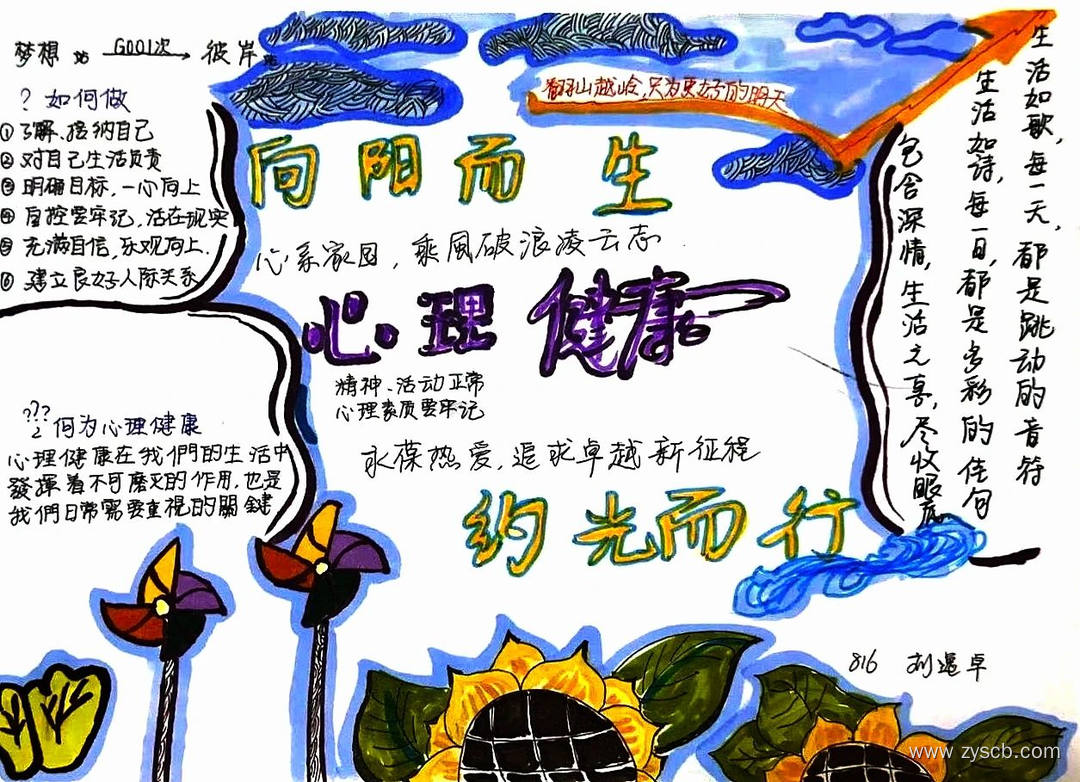 梦想站 G001次 彼岸站
? 如何做
①了解、接纳自己
②对自己生活负责
③明确目标,一心向上
④自控要牢记,活在现实
⑤充满自信,乐观向上.
⑥建立良好人际关系
翻山越岭,只为更好的明天
向阳而生
心系家国,乘風破浪凌云志
心理健康
精神、活动正常
心理素质要牢记
永葆热爱,追求卓越新征程
约光而行
??? 何为心理健康
心理健康在我們的生活中
發揮着不可磨灭的作用,也是
我們日常需要重视的關鍵
生活如歌,每一天,都是跳动的音符
生活如詩,每一日,都是多彩的佳句
包含深情,生活之喜,尽收眼底
816 刘暹卓
www.zyscb.com